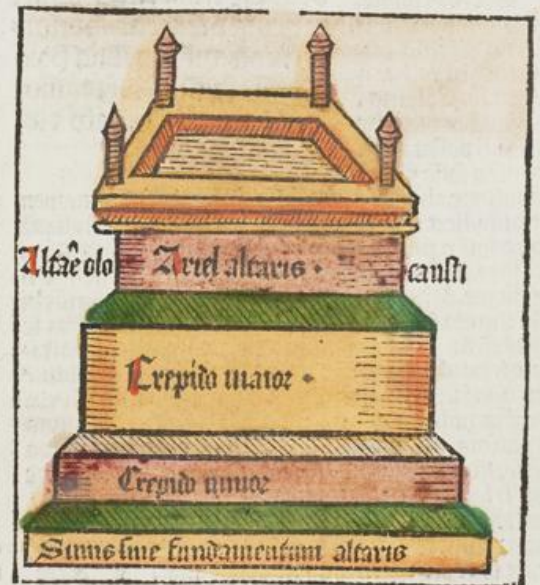 Altaē olo Ariel altaris · causti
Crepido maior ·
Crepido minor
Sinus siue fundamentum altaris